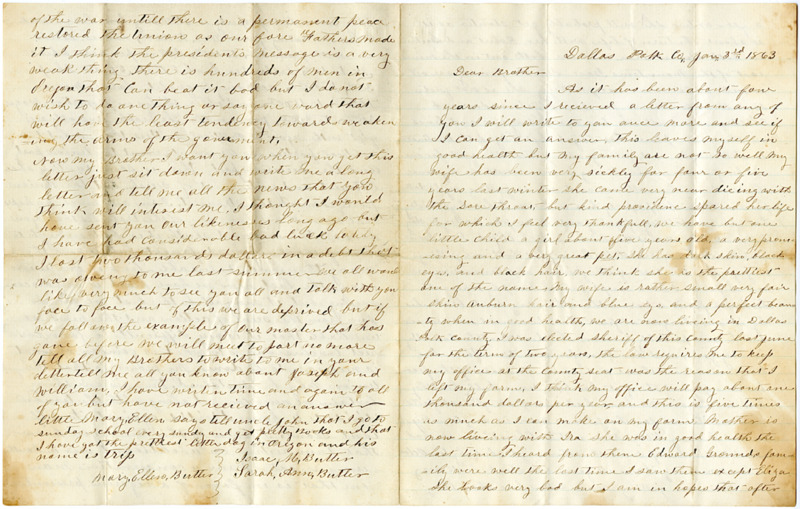 of the war untill there is a permanent peace
restored the union as our fore Fathers made
it I think the presidents message is a very
weak thing there is hundreds of men in
Oregon that can beat it bad but I do not
wish to do any thing or say one word that
will have the least tendency toward weaken
ing the arms of the goverment,
Now my Brother I want you when you get this
letter just sit down and write me a long
letter and tell me all the news that you
think will interest me, I thought I would
have sent you our likenesses long ago but
I have had considerable bad luck lately
I lost two thousands dollars in a debt that
was oweing to me last summer we all would
like very much to see you all and talk with you
face to face but if this we are deprived but if
we follow the example of our master that has
gone before we will meet to part no more
tell all my Brothers to write to me in your
letter tell me all you know about Joseph and
William, I have writen time and again to all
of you but have not recieved an answer
little Mary Ellen says tell uncle John that I go to
sunday school every sunday and get pretty Books and that
I have got the prettiest little dog in oregon and his
name is trip
Isaac M, Butler
Mary Ellen, Butler
Sarah, Ann, Butler
Dallas Polk Co, Jany 3rd, 1863
Dear Brother
As it has been about four
years since I recieved a letter from any of
you I will write to you once more and see if
I can get an answer, this leaves myself in
good health but my family are not so well my
wife has been very sickly for four or five
years last winter she came very near dieing with
the sore throat but kind providence spared her life
for which I feel very thankfull, we have but one
little child a girl about five years old, a very prom-
iseing and a very great pet, she has dark skin, black
eys, and black hair, we think she is the prettiest
one of the name, My wife is rather small very fair
skin auburn hair and blue eys, and a perfect beau-
ty when in good health, we are now liveing in Dallas
Polk county I was elected sheriff of this county last june
for the term of two years, the law requires me to keep
my office at the county seat was the reason that I
left my farm, I think my office will pay about one
thousand dollars per year and this is five times
as much as I can make on my farm Mother is
now liveing with Ira she was in good health the
last time I heard from them Edward Grounds fam-
ily were well the last time I saw them except Eliza
she looks very bad but I am in hopes that after